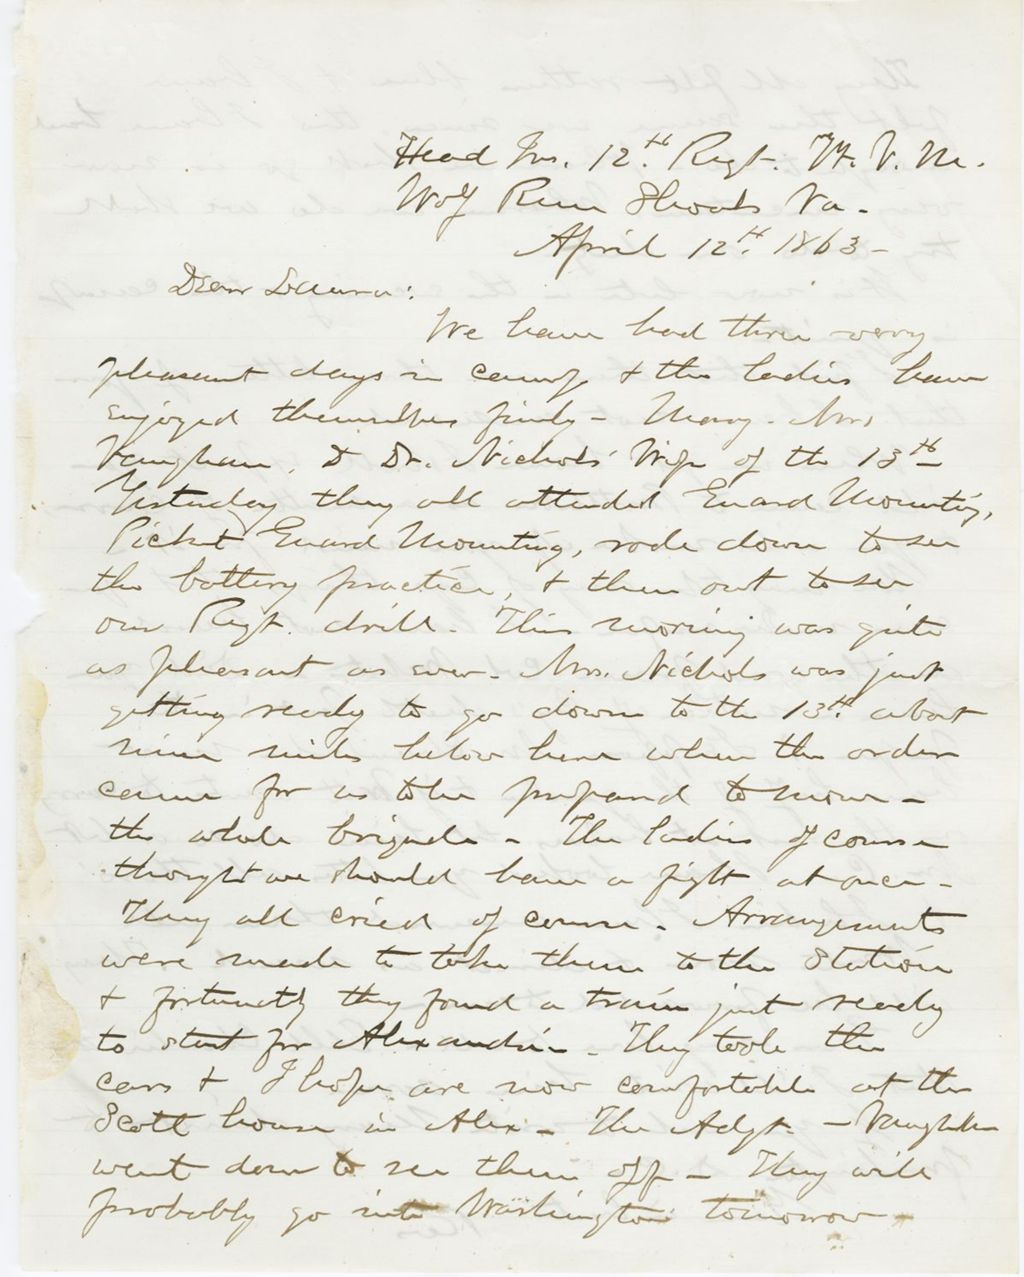 Head Qrs. 12th Regt. Vt. V. M.
Wolf Run Shoals Va.
April 12th 1863 -
Dear Laura:
We have had three very
pleasant days in camp & the ladies have
enjoyed themselves finely - Mary. Mrs
Vaughan, & Dr. Nichols' Wife of the 13th
Yesterday they all attended Guard Mounting,
Picket Guard Mounting, rode down to see
the battery practice, & then out to see
our Regt. drill. This morning was quite
as pleasant as ever. Mrs. Nichols was just
getting ready to go down to the 13th about
nine miles below here when the order
came for us to be prepared to move -
the whole brigade - The ladies of course
thought we should have a fight at once -
They all cried of course. Arrangements
were made to take them to the Station
& fortunately they found a train just ready
to start for Alexandria - They took the
cars & I hope are now comfortable at the
Scott house in Alex - The Adgt. - Vaughan
went down to see them off - They will
probably go into Washington tomorrow -